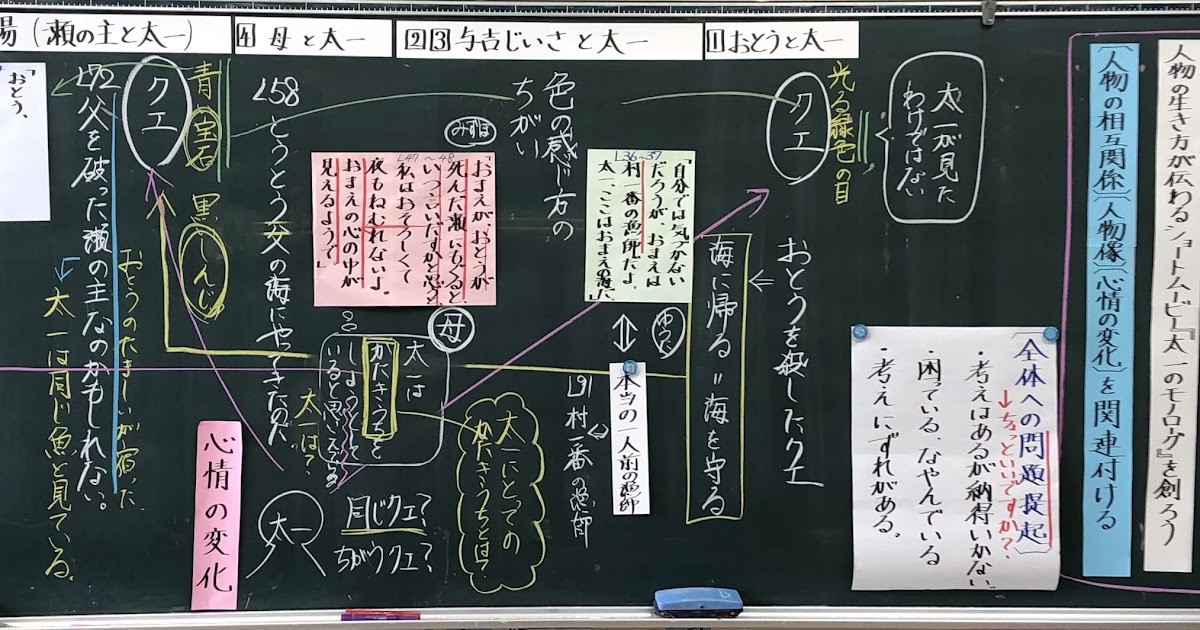 人物の生き方が伝わるショートムービー『太一のモノローグ』を創ろう
〔人物の相互関係〕〔人物像〕〔心情の変化〕を関連付ける
〔全体への問題提起〕
→ちょっといいですか？
・考えはあるが納得いかない
・困っている、なやんでいる
・考えにずれがある。
1おとうと太一
23与吉じいさと太一
4母と太一
場(瀬の主と太一)
太一が見た
わけではない
光る緑色の目
クエ
おとうを殺したクエ
海に帰る＝海を守る
L36〜37
「自分では気づかない
だろうが、おまえは
村一番の漁師だよ。
太一、ここはおまえの海だ。
ゆうた
本当の一人前の漁師
L91
村一番の漁師
色の感じ方の
ちがい
みずほ
L47〜48
「おまえが、おとうが
死んだ瀬にもぐると、
いつ言いだすかと思うと、
私はおそろしくて
夜もねむれないよ。
おまえの心の中が
見えるようで」
母
太一は
かたきうちを
しようとして
いると思いこんでる
太一は？
太一にとっての
かたきうちとは？
同じクエ？
ちがうクエ？
太一
L58
とうとう父の海にやってきたのだ
心情の変化
青い宝石
黒しんじゅ
クエ
L72
父を破った瀬の主なのかもしれない。
おとうのたましいが宿った
太一は同じ魚と見ている。
「おとう、